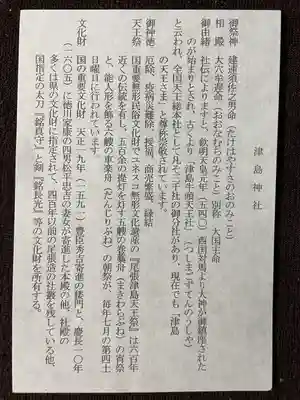 津島神社
御祭神 建速須佐之男命(たけはやすさのおのみこと)
相殿 大穴牟遅命(おおなむちのみこと)別称 大国主命
御由緒 社伝によりますと、欽明天皇元年(五四〇)西国対馬より大神が御鎮座された
のが始まりとされ、古くより「津島牛頭天王社」(つしまごずてんのうしゃ)
と云われ、全国天王総本社として凡そ三千社の御分社があり、現在でも「津島
の天王さま」と尊称崇敬されています。
御神徳 厄除、疫病災難除、授福、商売繁盛、縁結
天王祭 国重要無形民俗文化財でユネスコ無形文化遺産の『尾張津島天王祭』は六百年
近くの伝統を有し、五百余の提灯を灯す五艘の巻藁舟(まきわらぶね)の宵祭
と、能人形を飾る六艘の車楽舟(だんじりぶね)の朝祭が、毎年七月の第四土
日曜日に行われています。
文化財 国の重要文化財、天正一九年(一五九一)豊臣秀吉寄進の楼門と、慶長一〇年
(一六〇五)に徳川家康の四男松平忠吉の妻女が寄進した本殿の他、社殿の
多くは県の文化財に指定されて、四百年以前の尾張造の社叢を残している他、
国指定の太刀『銘真守』と剣『銘長光』等の文化財を所有する。